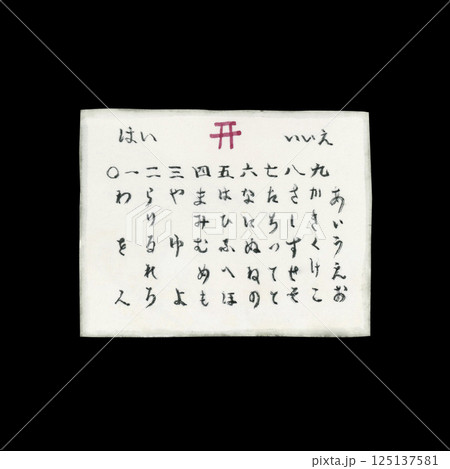 はい
いいえ
あいうえお
九かきくけこ
八さしすせそ
七たちつてと
六なにぬねの
五はひふへほ
四まみむめも
三やゆよ
二らりるれろ
一わをん
〇
PIXTA
pixta.jp - 125137581